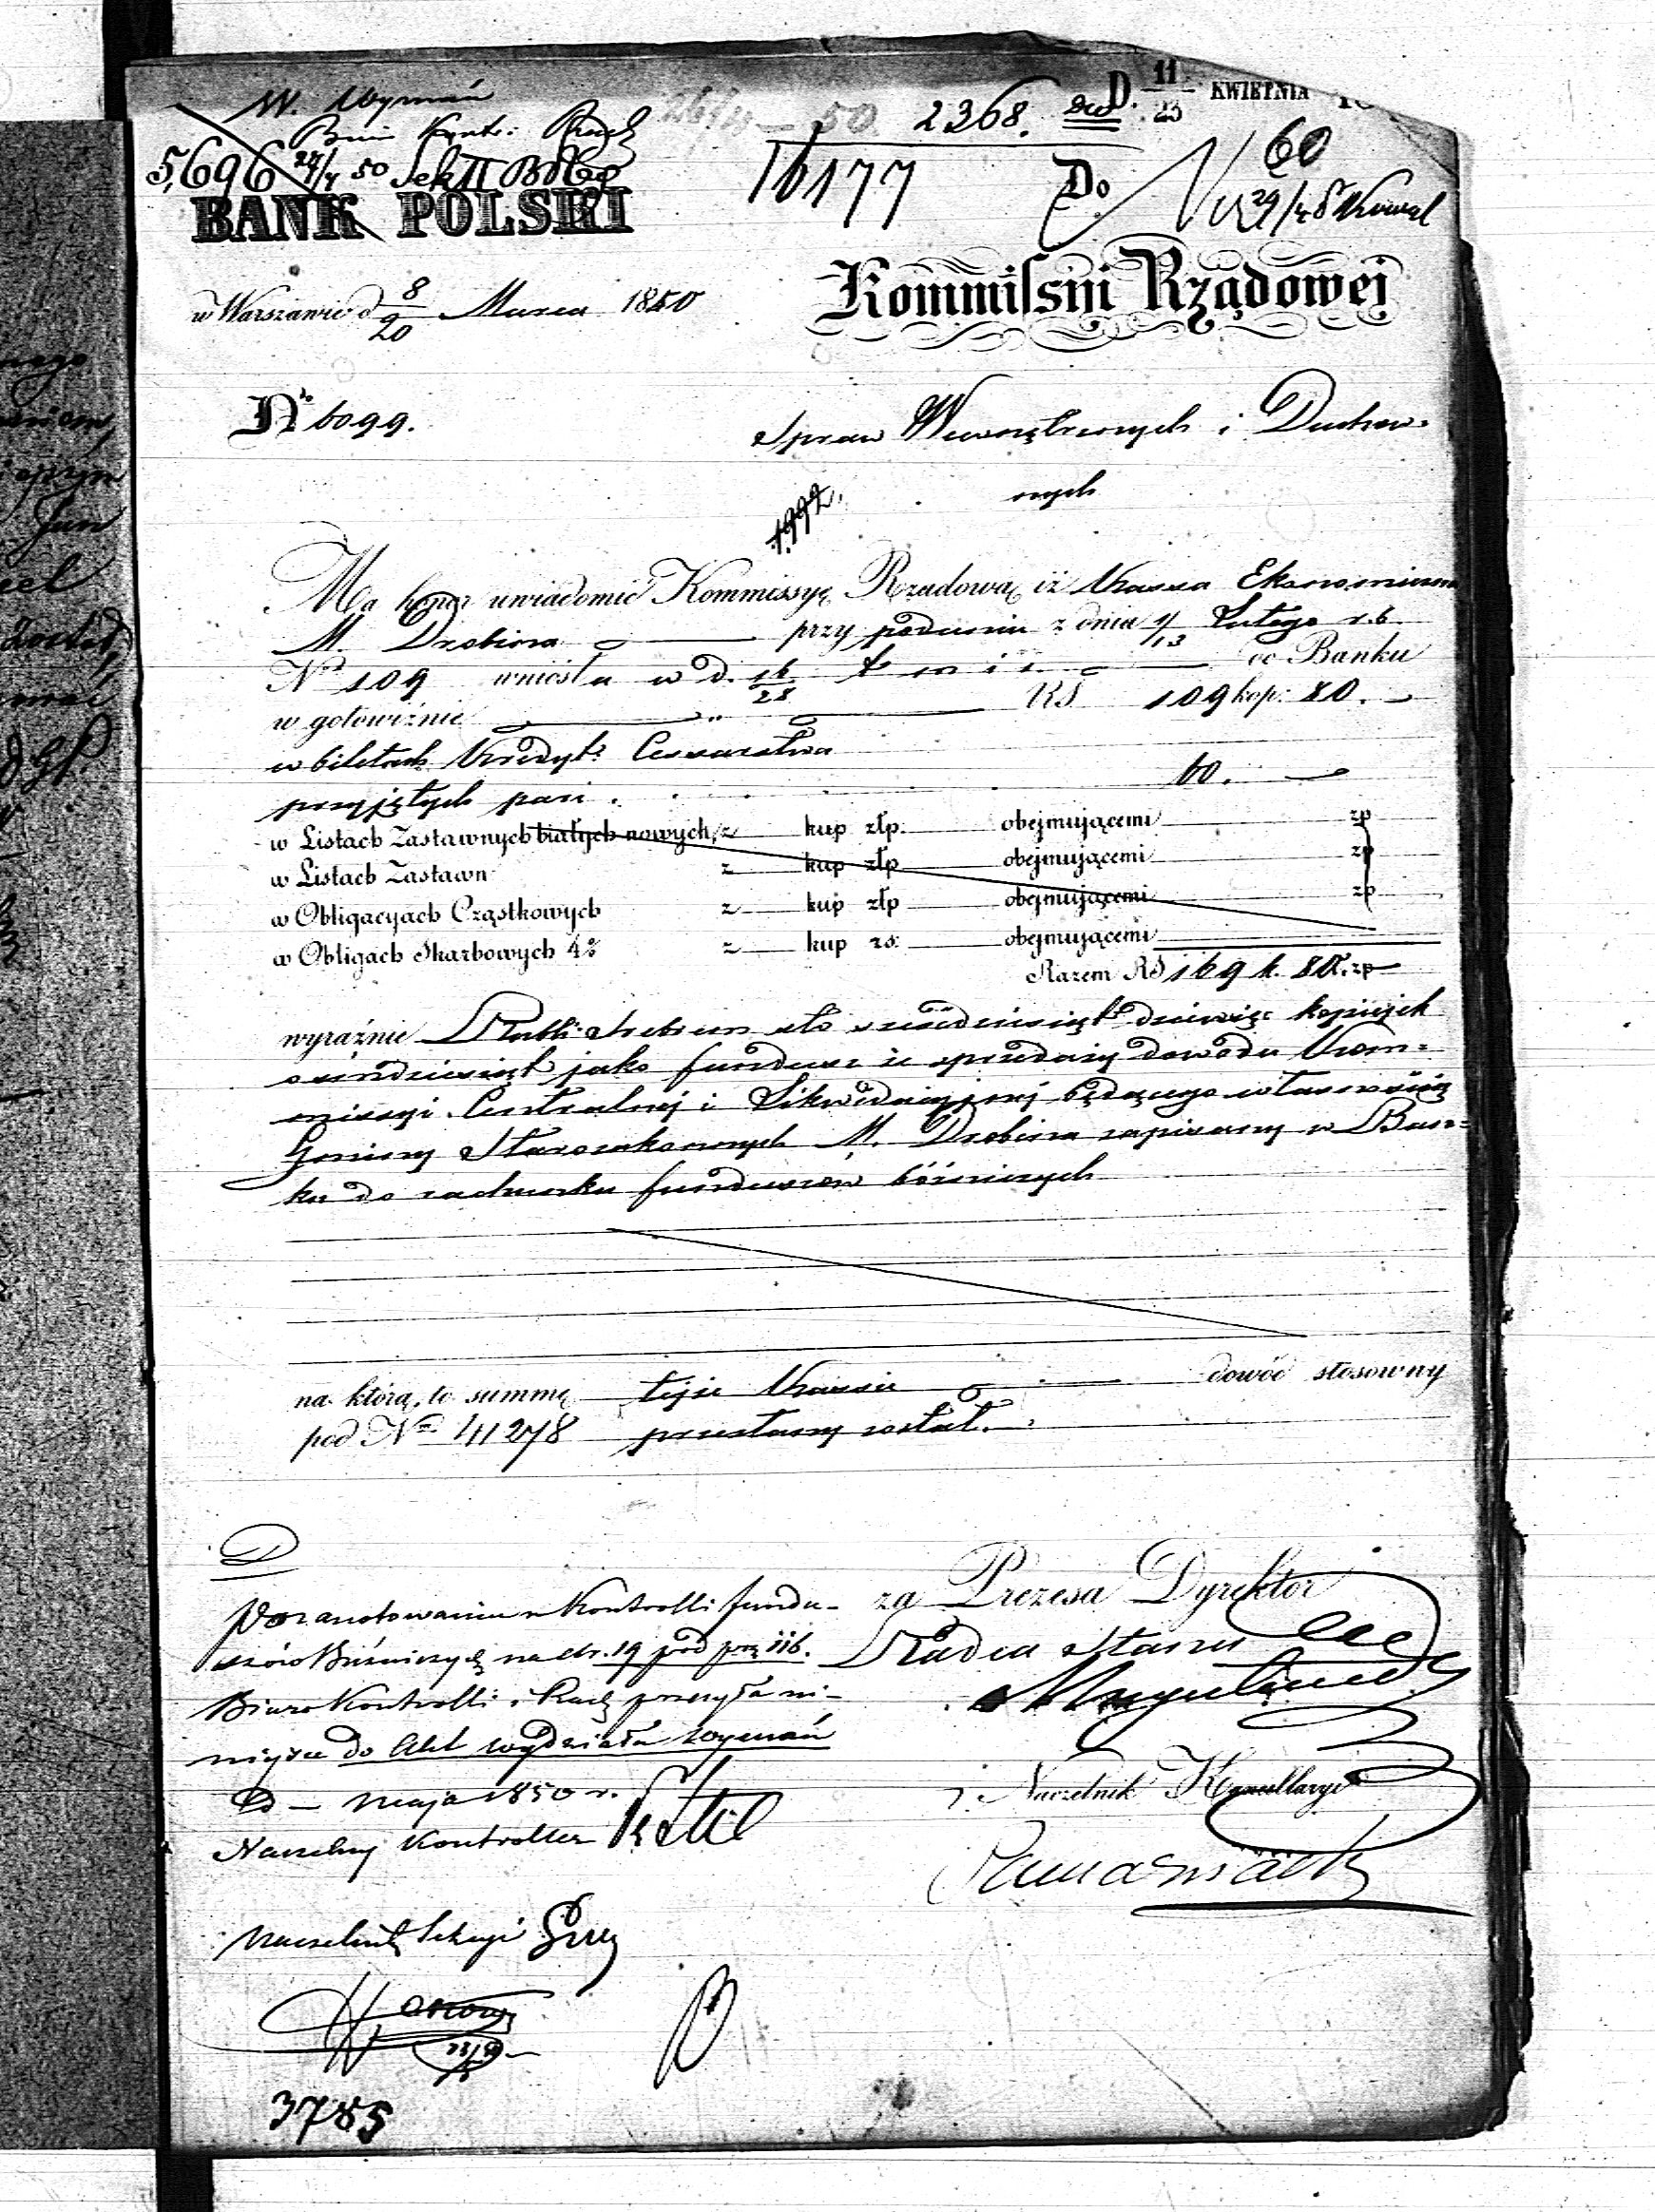 W. Wyznań
2368. D. 11/23 KWIETNIA
Biuro Kontr: Rach
60
5,696 27/4 50 Sek II
16177
Do
BANK POLSKI
w Warszawie d 8/20 Marca 1850
Kommissyi Rządowej
No 6099.
Spraw Wewnętrznych i Duchow-
nych
1992.
Ma honor uwiadomić Kommissyę Rządową iż Kassa Ekonomiczna
M. Drobina przy podaniu z dnia 1/13 Lutego r.b.
No 109 wniosła w d. 16/28 t m i r do Banku
w gotowiźnie " RS 109 kop: 80.
w biletach Kredyt: Cesarstwa
przyjętych pari . 60.
w Listach Zastawnych białych nowych, z kup złp. obejmującemi zp
w Listach Zastawn z kup złp obejmującemi zp
w Obligacyach Cząstkowych z kup złp obejmującemi zp
w Obligach Skarbowych 4% z kup rs: obejmującemi
Razem RS 169 k. 80. zp
wyraźnie Rubli srebrem sto sześćdziesiąt dziewięć kopiejek
osiemdziesiąt jako fundusz ze sprzedaży dowodu Kom-
missyi Centralnej i Likwidacyjnej będącego własnością
Gminy Starozakonnych M. Drobina zapisany w Ban-
ku do rachunku funduszów bóżniczych
na którą to summę tejże Kassie dowód stosowny
pod No 41278 przesłany został.
Po zanotowaniu w Kontrolli fundu-
szów Bużniczych na str. 19 pod poz 116.
Biuro Kontrolli i Rach przesyła ni-
niejsze do Akt wydziału wyznań
D — maja 1850 r.
Naczelny Kontroller
za Prezesa Dyrektor
Radca Stanu
Naczelnik Kancellaryi
Naczelnik Sekcyi
3785